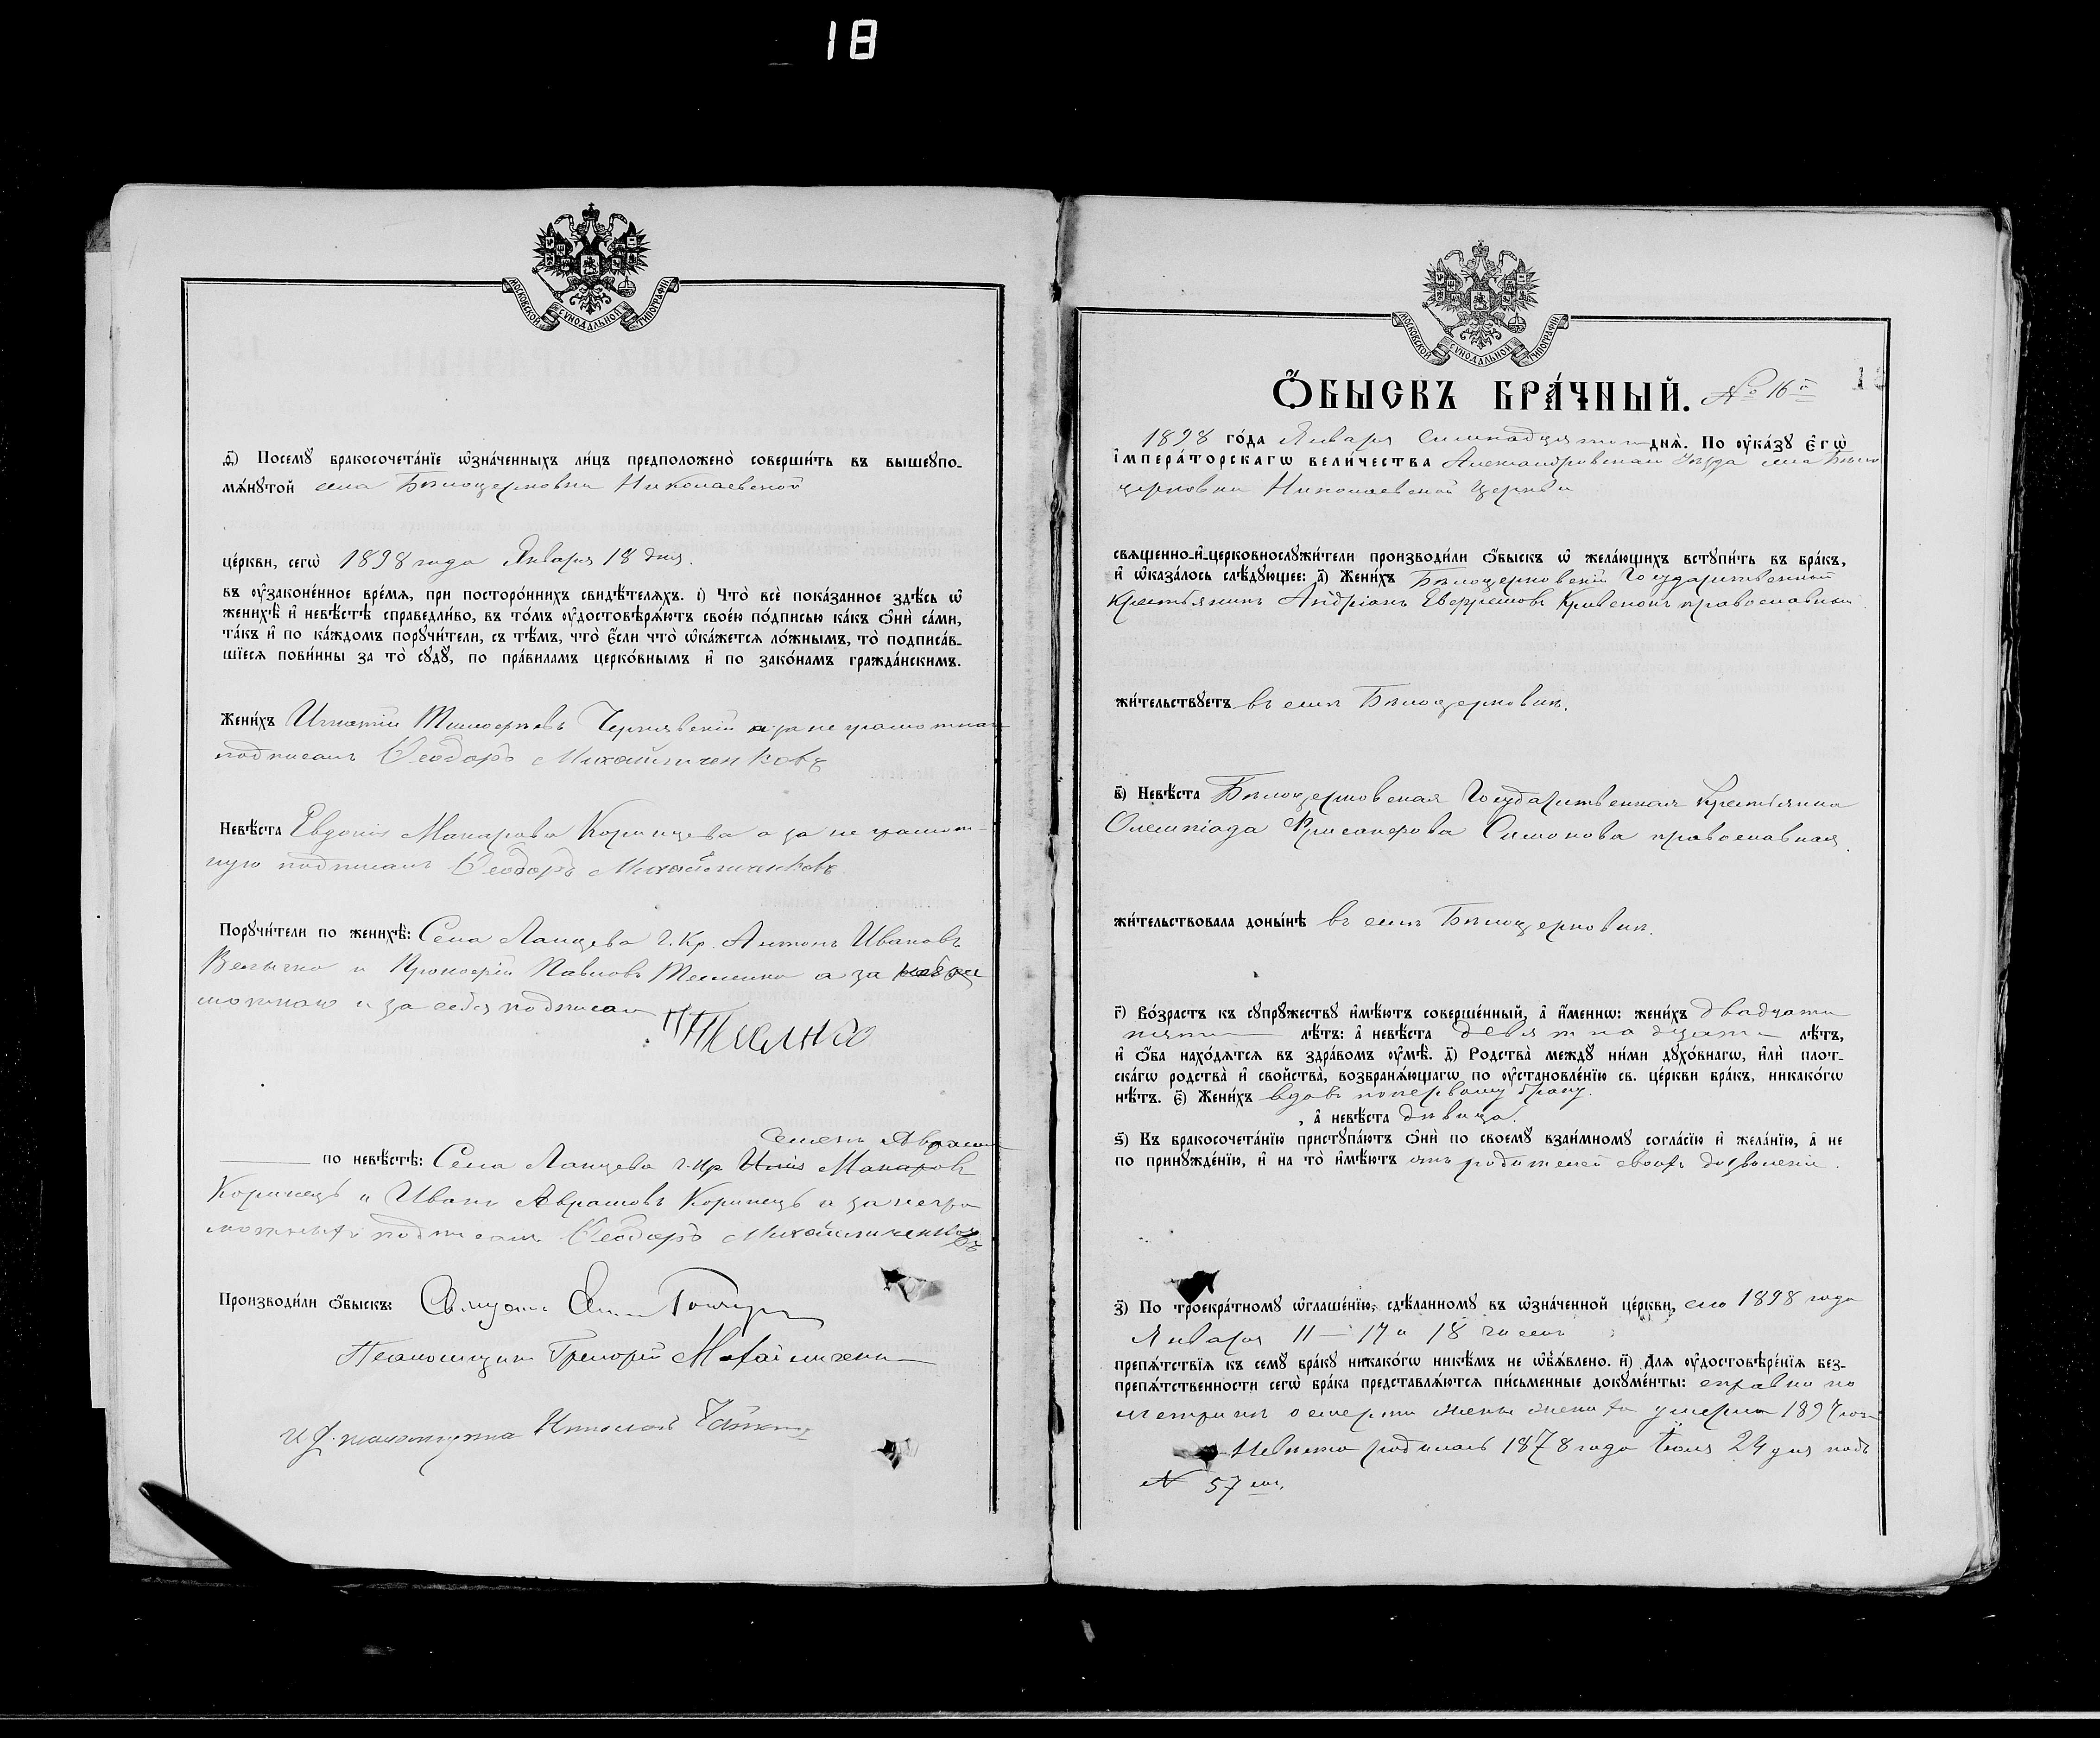 18
МОСКОВСКОЙ СѴНОДАЛЬНОЙ ТИПОГРАФІИ
ѳ҃) Посемꙋ бракосочета́нїе ѡ҆зна́ченныхъ ли́цъ предположено̀ соверши́ть въ вышеꙋпо-
мѧ́нꙋтой села Бѣлоцерковки Николаевской
це́ркви, сегѡ̀ 1898 года Января 18 дня.
въ ᲂу҆зако́ненное вре́мѧ, при посторо́ннихъ свидѣ́телѧхъ. і҃) Что̀ всѐ пока́занное здѣ́сь ѡ҆
женихѣ̀ и҆ невѣ́стѣ справедли́во, въ то́мъ ᲂу҆достовѣрѧ́ютъ свое́ю по́дписью ка́къ ѻ҆нѝ са́ми,
та́къ и҆ по ка́ждомъ порꙋчи́тели, съ тѣ́мъ, что̀ є҆́сли что̀ ѡ҆ка́жетсѧ ло́жнымъ, то̀ подписа́в-
шїесѧ пови́нны за то̀ сꙋдꙋ̀, по пра́виламъ церко́внымъ и҆ по зако́намъ гражда́нскимъ.
Жени́хъ Игнатій Тимофѣевъ Чернявскій а за неграмотнаго
подписалъ Ѳеодоръ Михайличенковъ
Невѣ́ста Евдокія Макарова Коринцева а за неграмот-
ную подписалъ Ѳеодоръ Михайличенковъ
Порꙋчи́тели по женихѣ̀: Села Ланцева г. кр. Антонъ Ивановъ
Величко и Прокофій Павловъ а за
и за себя подписалъ
Семенъ Аврамовъ
по невѣ́стѣ: Села Ланцева г. кр. Макаровъ
Коринецъ и Иванъ Аврамовъ Коринецъ а за негра
мотныхъ подписалъ Ѳеодоръ Михайличенковъ
Производи́ли ѻ҆́быскъ:
Псаломщикъ Григорій Михайличенко
и. д. псаломщика Николай
МОСКОВСКОЙ СѴНОДАЛЬНОЙ ТИПОГРАФІИ
Ѻ҆́БЫСКЪ БРА́ЧНЫЙ. № 16й
1898 го́да Января семнадцатого днѧ̀. По ᲂу҆ка́зꙋ є҆гѡ̀
і҆мпера́торскагѡ вели́чества Александровскаго Уѣзда села Бѣло
церковки Николаевской Церкви
свѧщенно-и҆-церковнослꙋжи́тели производи́ли ѻ҆́быскъ ѡ҆ жела́ющихъ встꙋпи́ть въ бра́къ,
и҆ ѡ҆каза́лось слѣ́дꙋющее: а҃) Жени́хъ Бѣлоцерковскій Государственный
Крестьянинъ Андріанъ Евфремовъ православный
жи́тельствꙋетъ въ селѣ Бѣлоцерковкѣ.
в҃) Невѣ́ста Бѣлоцерковская Государственная Крестьянка
Олимпіада Хрисанфова Симонова православная.
жи́тельствовала доны́нѣ въ селѣ Бѣлоцерковкѣ.
г҃) Во́зрастъ къ сꙋпрꙋ́жествꙋ и҆мѣ́ютъ соверше́нный, а҆ и҆́менно: жени́хъ двадцати
пяти лѣ́тъ: а҆ невѣ́ста девятнадцати лѣ́тъ,
и҆ ѻ҆́ба нахо́дѧтсѧ въ здра́вомъ ᲂу҆мѣ̀. д҃) Родства̀ междꙋ̀ ни́ми дꙋхо́внагѡ, и҆лѝ плот-
ска́гѡ родства̀ и҆ свойства̀, возбранѧ́ющагѡ по ᲂу҆становле́нїю св. це́ркви бра́къ, никако́гѡ
нѣ́тъ. є҃) Жени́хъ вдовъ по первому браку.
, а҆ невѣ́ста дѣвица.
ѕ҃) Къ бракосочета́нїю пристꙋпа́ютъ ѻ҆нѝ по своемꙋ̀ взаи́мномꙋ согла́сїю и҆ жела́нїю, а҆ не
по принꙋжде́нїю, и҆ на то̀ и҆мѣ́ютъ отъ родителей своихъ дозволеніе.
з҃) По троекра́тномꙋ ѡ҆глаше́нїю, сдѣ́ланномꙋ въ ѡ҆зна́ченной це́ркви, сего 1898 года
Января 11 — 17 и 18 чиселъ
препѧ́тствїѧ къ семꙋ̀ бра́кꙋ никако́гѡ никѣ́мъ не ѡ҆б̾ѧ́влено. и҃) Длѧ ᲂу҆достовѣре́нїѧ без-
препѧ́тственности сегѡ̀ бра́ка представлѧ́ютсѧ пи́сьменные докꙋме́нты: справка по
метрикѣ о смерти жены жениха умерла 1897 года
Невѣста родилась 1878 года Іюля 24 дня подъ
№ 57 м.